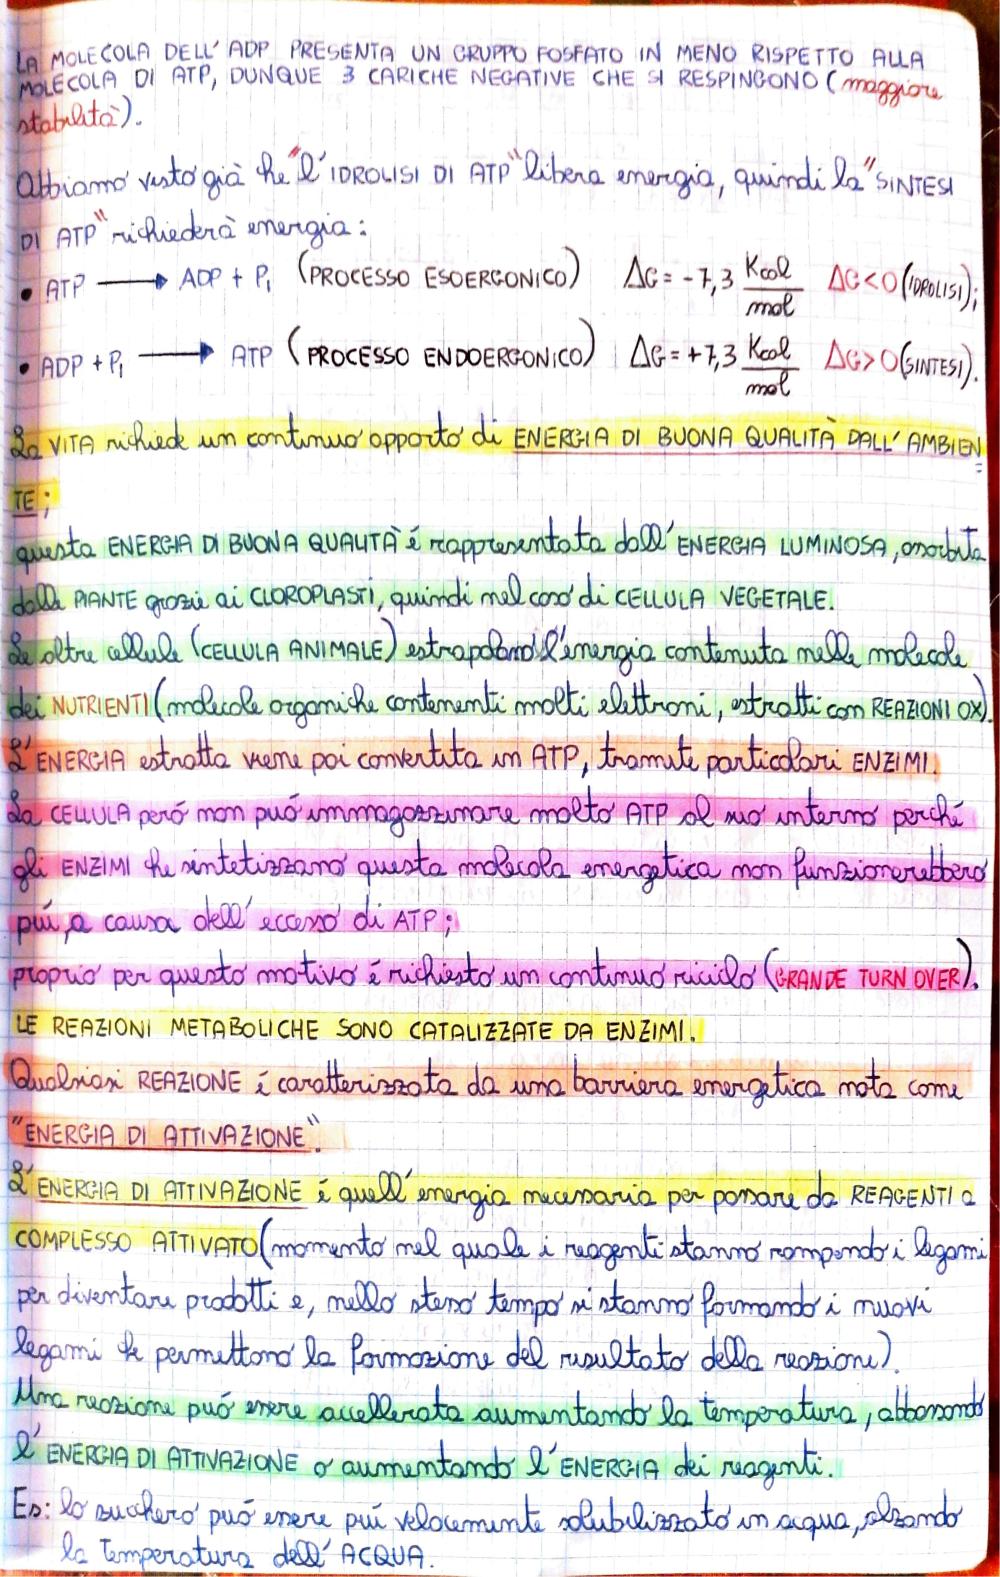 LA MOLECOLA DELL'ADP PRESENTA UN GRUPPO FOSFATO IN MENO RISPETTO ALLA
MOLECOLA DI ATP, DUNQUE 3 CARICHE NEGATIVE CHE SI RESPINGONO (maggiore
stabilità).
Abbiamo visto già che "l'IDROLISI DI ATP" libera energia, quindi la "SINTESI
DI ATP" richiederà energia:
• ATP → ADP + Pi (PROCESSO ESOERGONICO) ΔG = -7,3 Kcal/mol ΔG<0 (IDROLISI);
• ADP + Pi → ATP (PROCESSO ENDOERGONICO) ΔG = +7,3 Kcal/mol ΔG>0 (SINTESI).
La VITA richiede un continuo apporto di ENERGIA DI BUONA QUALITÀ DALL'AMBIEN=
TE;
questa ENERGIA DI BUONA QUALITÀ é rappresentata dall'ENERGIA LUMINOSA, assorbita
dalle PIANTE grazie ai CLOROPLASTI, quindi nel caso di CELLULA VEGETALE.
Le altre cellule (CELLULA ANIMALE) estrapolano l'energia contenuta nelle molecole
dei NUTRIENTI (molecole organiche contenenti molti elettroni, estratti con REAZIONI OX).
L'ENERGIA estratta viene poi convertita in ATP, tramite particolari ENZIMI.
La CELLULA peró non puó immagazzinare molto ATP al suo interno perché
gli ENZIMI che sintetizzano questa molecola energetica non funzionerebbero
piú, a causa dell'eccesso di ATP;
proprio per questo motivo é richiesto un continuo riciclo (GRANDE TURN OVER).
LE REAZIONI METABOLICHE SONO CATALIZZATE DA ENZIMI.
Qualsiasi REAZIONE é caratterizzata da una barriera energetica nota come
"ENERGIA DI ATTIVAZIONE".
L'ENERGIA DI ATTIVAZIONE é quell'energia necessaria per passare da REAGENTI a
COMPLESSO ATTIVATO (momento nel quale i reagenti stanno rompendo i legami
per diventare prodotti e, nello stesso tempo si stanno formando i nuovi
legami che permettono la formazione del risultato della reazione).
Una reazione puó essere accellerata aumentando la temperatura, abbassando
l'ENERGIA DI ATTIVAZIONE o aumentando l'ENERGIA dei reagenti.
Es: lo zucchero puó essere piú velocemente solubilizzato in acqua, alzando
la temperatura dell'ACQUA.